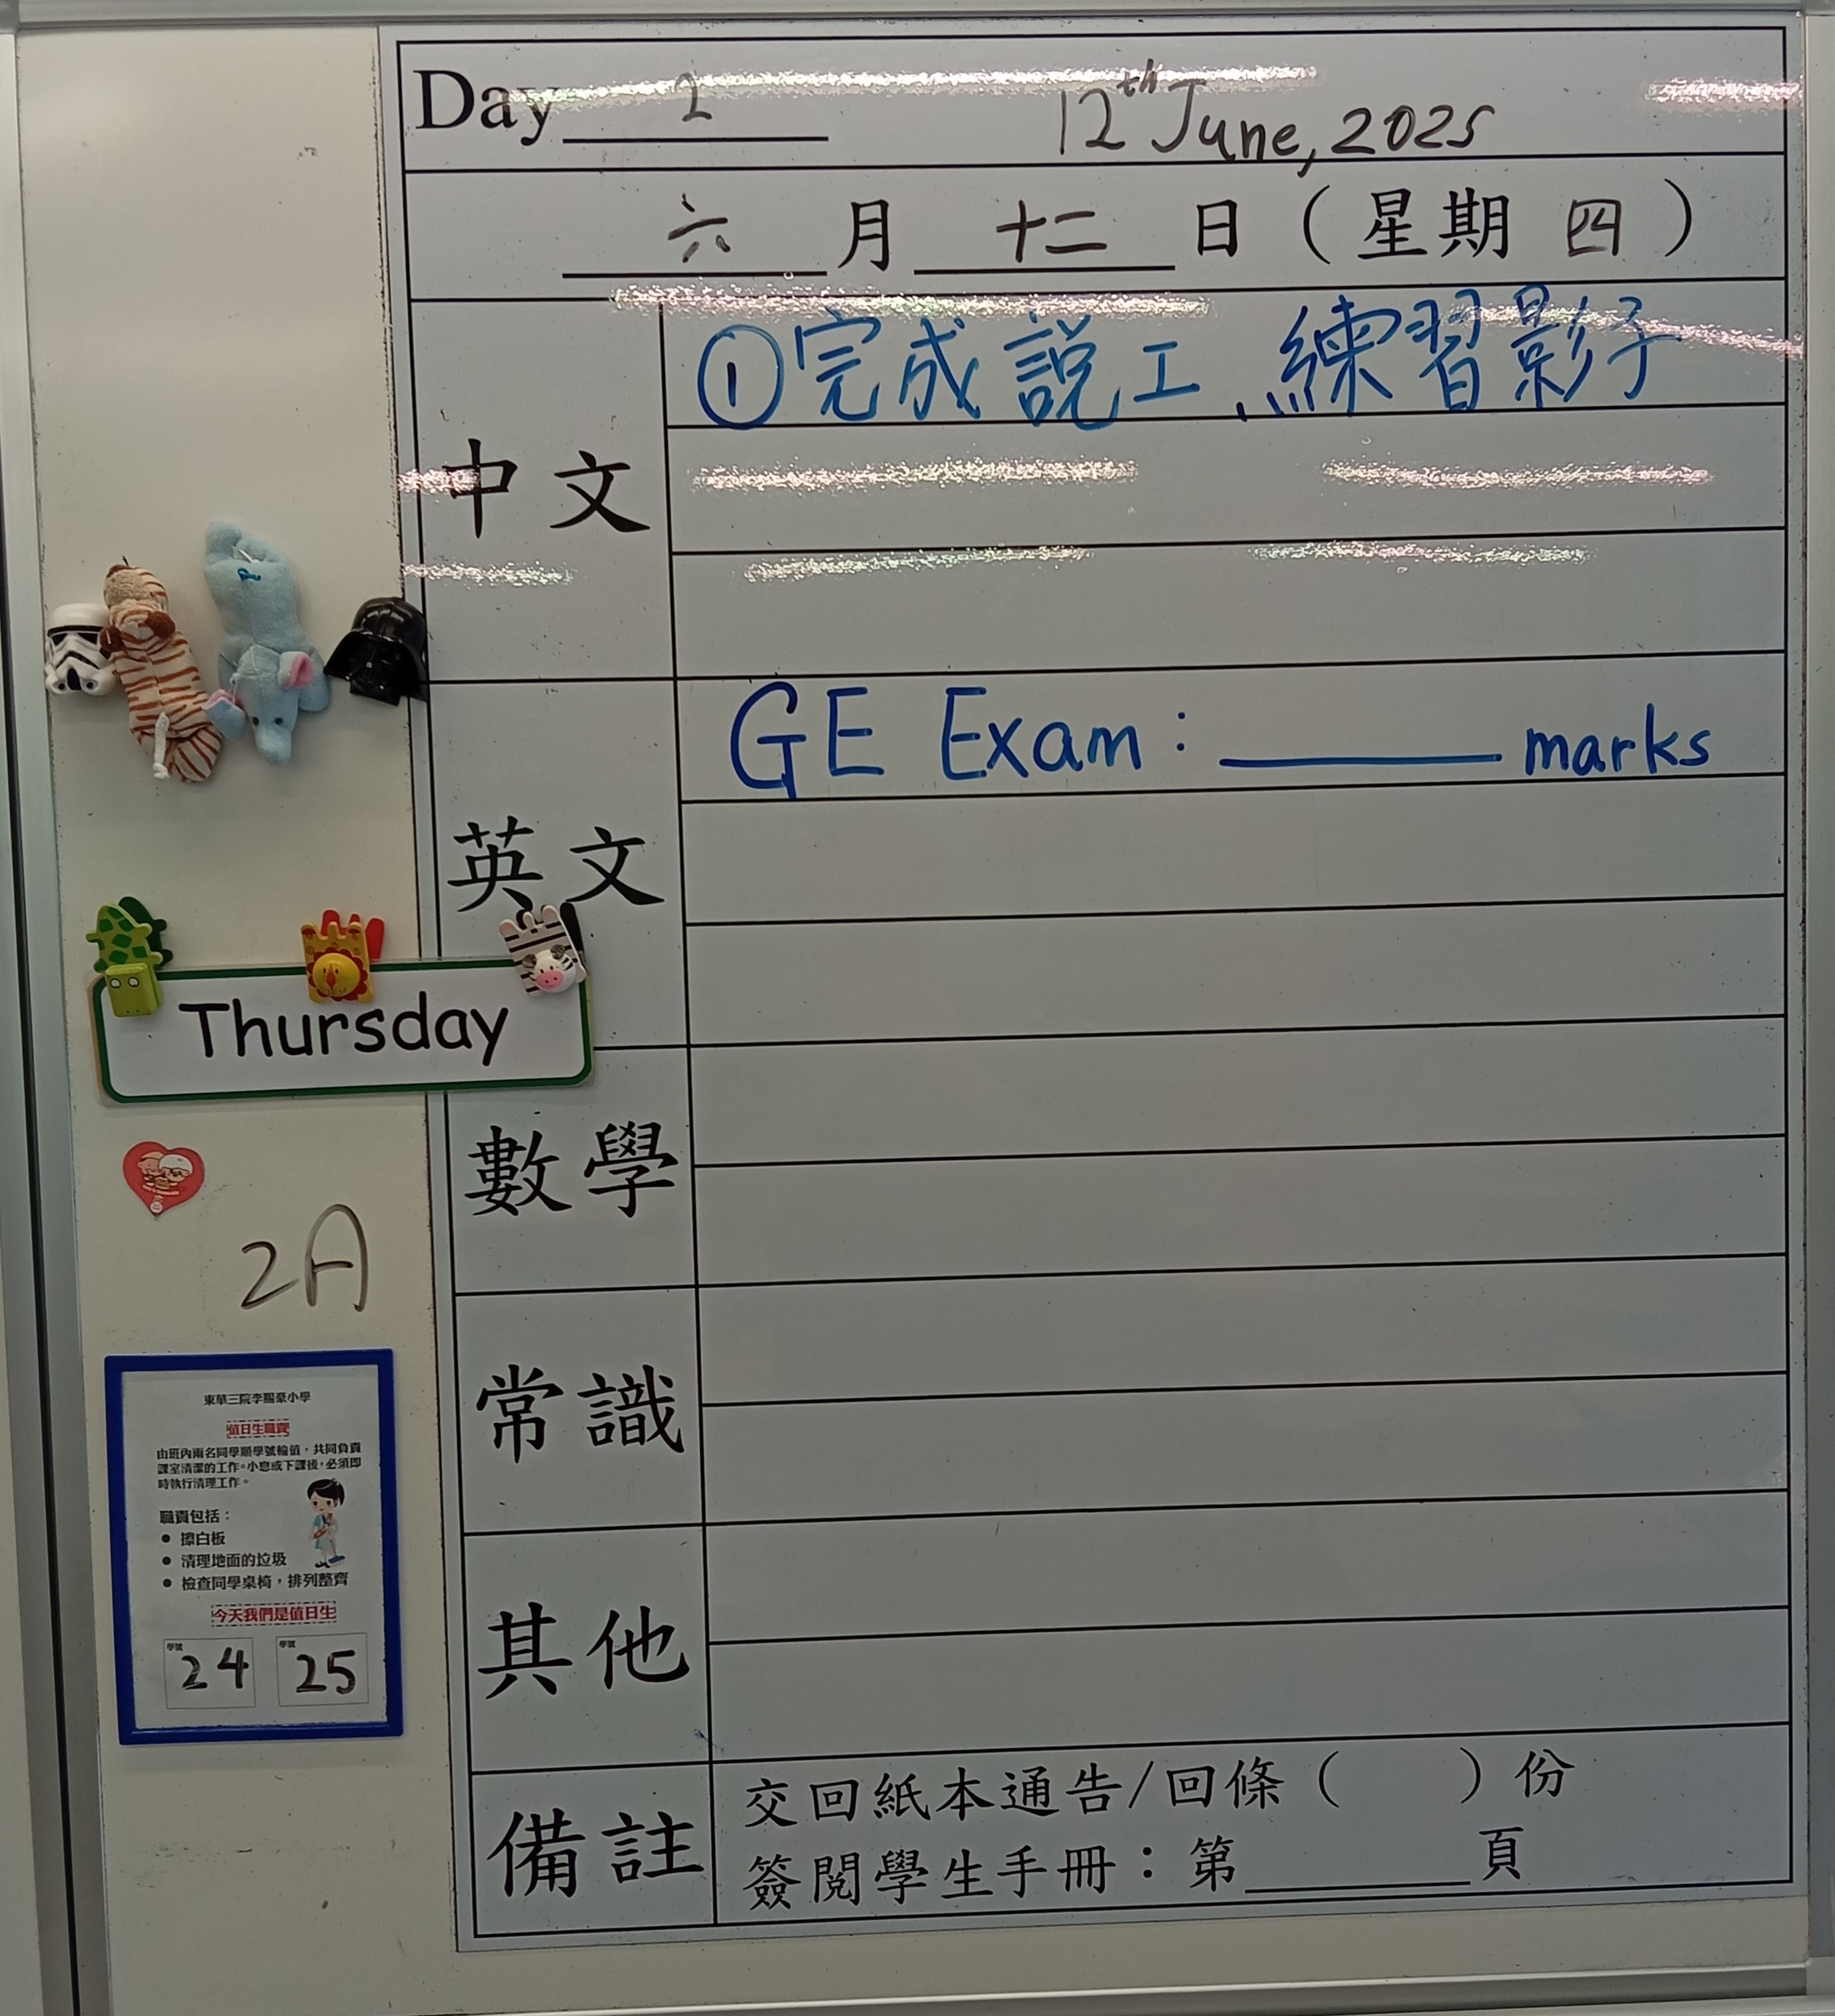 Day 2 12th June, 2025
六 月 十二 日 ( 星期 四 )
中文
①完成説工、練習影子
英文
GE Exam : ______ marks
Thursday
數學
2A
常識
其他
備註
交回紙本通告/回條 ( ) 份
簽閱學生手冊：第______頁
東華三院李賜豪小學
值日生職責
由班內兩名同學順學號輪值，共同負責
課室清潔的工作。小息或下課後，必須即
時執行清理工作。
職責包括：
● 擦白板
● 清理地面的垃圾
● 檢查同學桌椅，排列整齊
今天我們是值日生
學號 學號
24 25